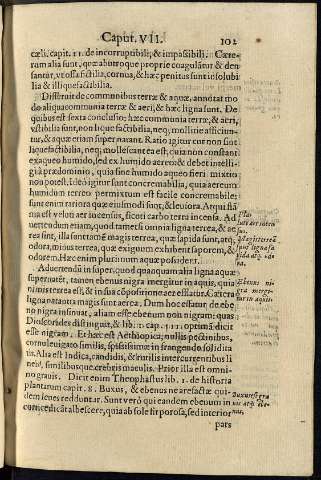 Caput. VII.
102
cæli. capit. 11. de incorruptibili, & impassibili. Cæte-
rum alia sunt, quæ ab utroque proprie coagulātur & den
santur, ut ossa fictilia, cornua, & hæc penitus sunt insolubi
lia & illiquefactibilia.
Disseruit de communibus terræ & aquæ, annotat mo
do aliqua communia terræ & aeri, & hæc ligna sunt. De
quibus est sexta conclusio: hæc communia terræ, & aeri,
ustibilia sunt, non lique factibilia, neq; mollitie afficiun-
tur, & aquæ etiam supernatant. Ratio igitur cur non sunt
liquefactibilia, neq; mollescant ea est, quia non constant
ex aqueo humido, sed ex humido aereo & debet intelli-
gi prædominio, quia sine humido aqueo fieri mixtio
non potest. Ideo igitur sunt concremabilia, quia aereum
humidum terreo permixtum est facile concremabile;
sunt enim rariora quæ eiusmodi sunt, & leviora. At quã fla
ma est veluti aer incensus, sicoti carbo terra incensa. Ad
uertendum etiam, quod tametsi omnia ligna terrea, & ae
rea sint, illa sunt tamē magis terrea, quæ lapida sunt, atq;
odora, minus terrea, quæ exiguum exhibent saporem, &
odorem. Hæc enim plurimum aquæ possident.
Aduertendū in super, quod quamquam alia ligna aquæ
supernatēt, tamen ebenus nigra mergitur in aquis, quia
nimis terrea est, & in sua cōpositione aer efflatur. Cætera
ligna natantia magis sunt aerea. Dum hoc effatur de ebe
no nigra insinuat, aliam esse ebenum non nigram: quas
Dioscorides distinguit, & lib. 1. cap. 111. optimā dicit
esse nigram. Et hæc est Aethiopica; nullis pectinibus,
cornu leuigato similis, spississimæ in frangendo solidita
tis. Alia est Indica, candidis, & rutilis intercurrentibus li
neis, similibusque crebris maculis. Prior illa est omni-
no grauis. Dicit enim Theophrastus lib. 1. de historia
plantarum capit. 8. Buxus, & ebenus ne arefactæ qui-
dem lenes redduntur. Sunt verò qui eandem ebenum in
cortice dicāt albescere, quia ab sole fit porosa, sed interior
pars
Ebenus ni
gra mergi-
tur in aquis.